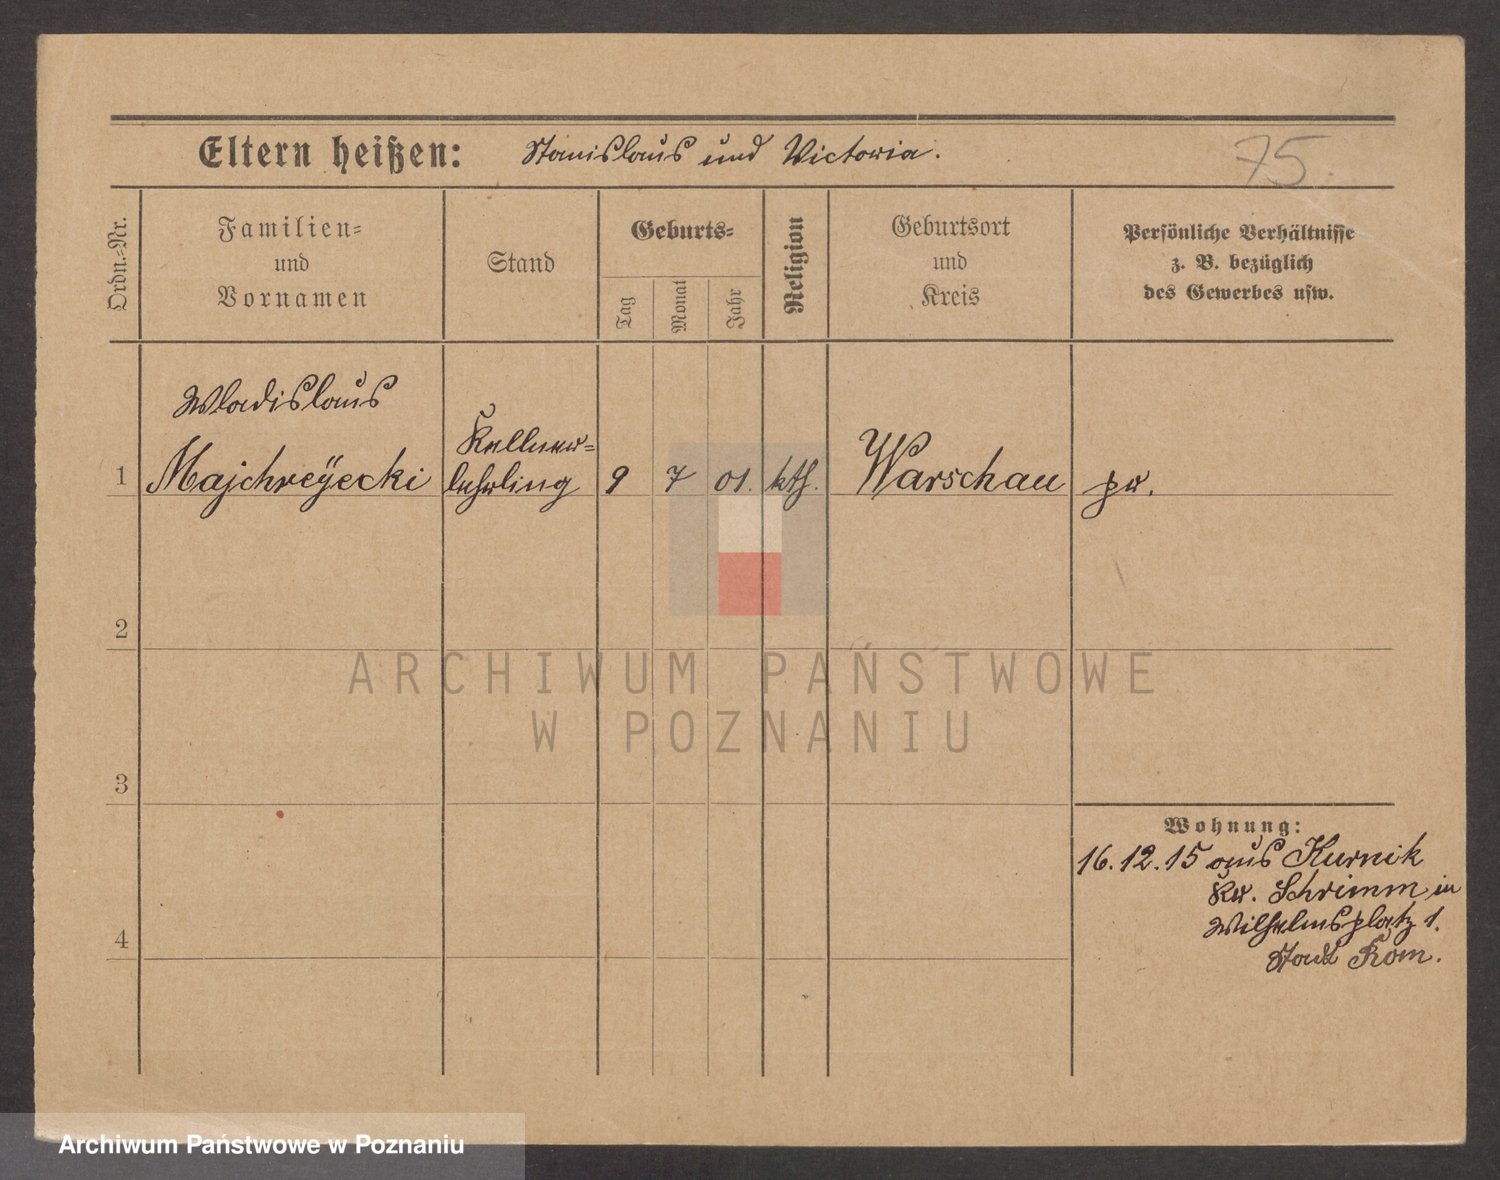 Eltern heißen: Stanislaus und Victoria.
75.
Ordn.-Nr.
Familien-
und
Vornamen
Stand
Geburts-
Tag
Monat
Jahr
Religion
Geburtsort
und
Kreis
Persönliche Verhältnisse
z. B. bezüglich
des Gewerbes usw.
Wladislaus
Kellner-
1 Majchreÿecki lehrling 9 7 01. kth. Warschau pr.
2
3
4
Wohnung:
16.12.15 aus Kurnik
Kr. Schrimm in
Wilhelmsplatz 1.
Stadt Kom.
ARCHIWUM PAŃSTWOWE
W POZNANIU
Archiwum Państwowe w Poznaniu